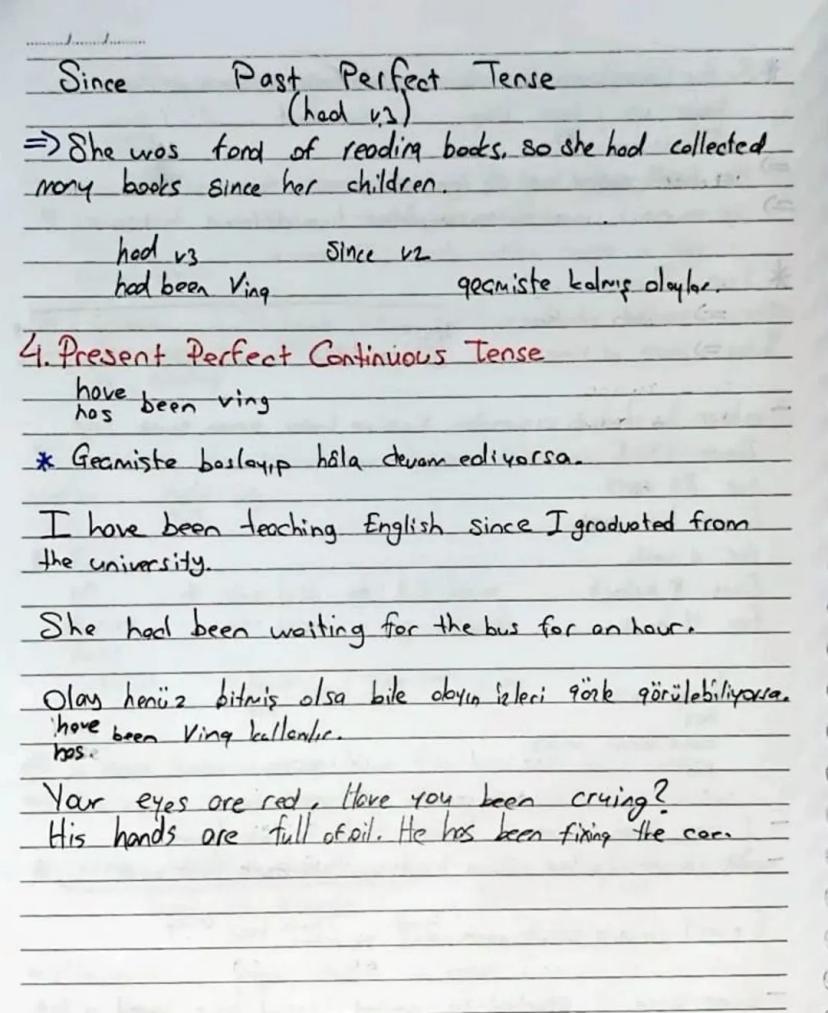 ....../....../......
Since Past Perfect Tense
(had v3)
⇒ She was fond of reading books, so she had collected
many books since her children.
had v3 Since v2
had been Ving geçmişte kalmış olaylar.
4. Present Perfect Continuous Tense
have
has been ving
* Geçmişte başlayıp hâla devam ediyorsa.
I have been teaching English since I graduated from
the university.
She had been waiting for the bus for an hour.
Olay henüz bitmiş olsa bile olayın izleri gözle görülebiliyorsa.
have been Ving kullanılır.
has
Your eyes are red, Have you been cruing?
His hands are full of oil. He has been fixing the car.